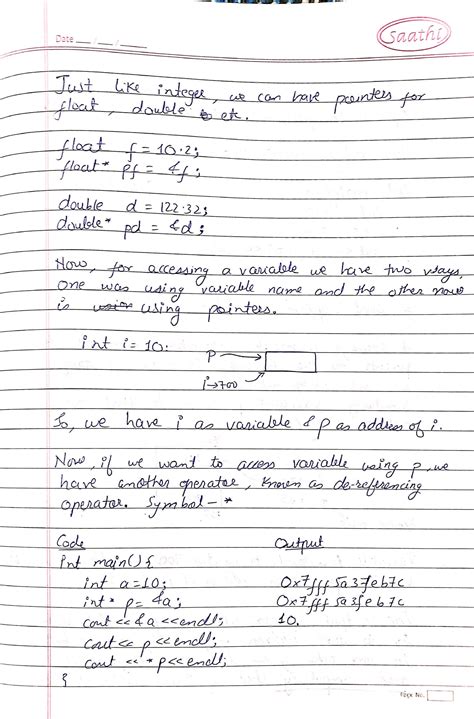 Date __/__/__
Saathi
Just like integer, we can have pointers for
float, double etc.
float f = 10.2;
float* pf = &f;
double d = 122.32;
double* pd = &d;
Now, for accessing a variable we have two ways,
One was using variable name and the other now
is using pointers.
int i = 10;
P
i→700
So, we have i as variable & p as address of i.
Now, if we want to access variable using p, we
have another operator, known as de-referencing
operator. Symbol - *
Code Output
int main() {
int a=10; 0x7fff5a37eb7c
int* p= &a; 0x7fff5a3feb7c
cout << &a <<endl; 10.
cout << p <<endl;
cout << *p <<endl;
}
Page No.